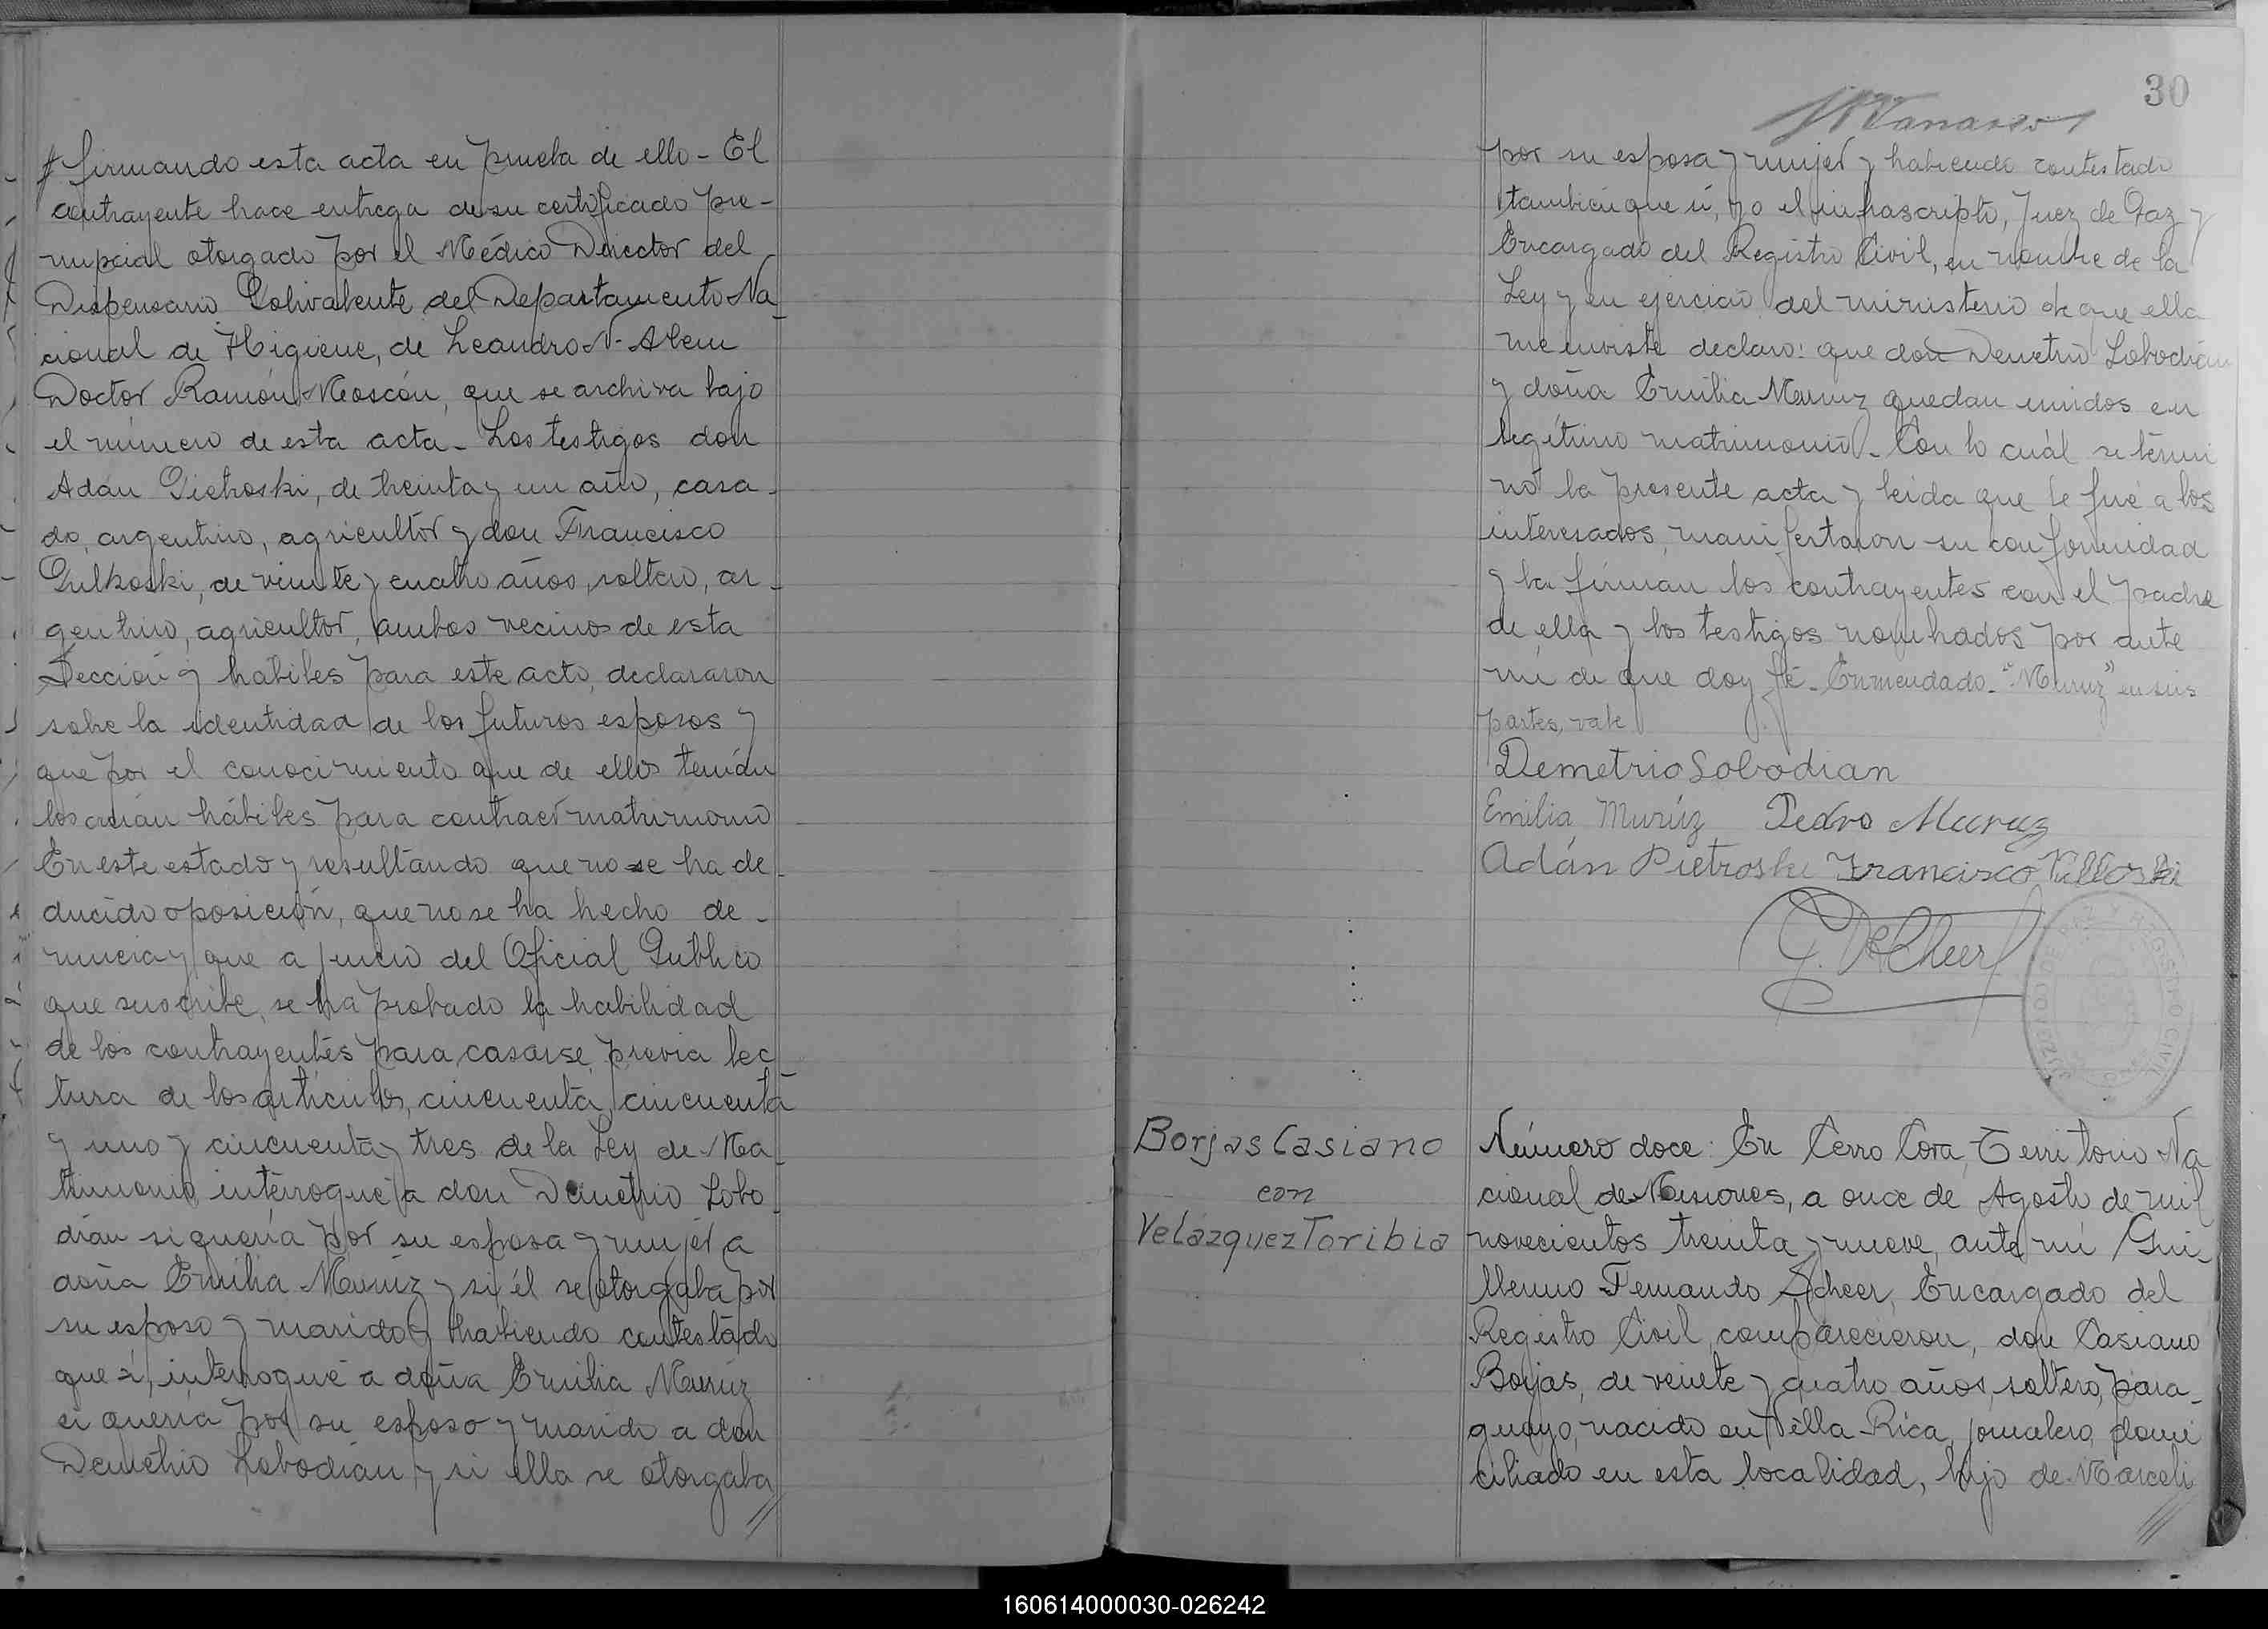 firmando esta acta en prueba de ello - El
contrayente hace entrega de su certificado pre-
nupcial otorgado por el Médico Director del
Dispensario Polivalente del Departamento Na-
cional de Higiene, de Leandro N. Alem
Doctor Ramón Moscón, que se archiva bajo
el número de esta acta - Los testigos don
Adán Pietroski, de treinta y un año, casa-
do, argentino, agricultor y don Francisco
Pulkoski, de veinte y cuatro años, soltero, ar-
gentino, agricultor, ambos vecinos de esta
Sección y hábiles para este acto, declararon
sobre la identidad de los futuros esposos y
que por el conocimiento que de ellos tenían
los creían hábiles para contraer matrimonio
En este estado y resultando que no se ha de-
ducido oposición, que no se ha hecho de-
nuncia y que a juicio del Oficial Público
que suscribe, se ha probado la habilidad
de los contrayentes para casarse, previa lec-
tura de los artículos, cincuenta, cincuenta
y uno y cincuenta y tres de la Ley de Ma-
trimonio, interrogué a don Demetrio Lobo-
dian si quería por su esposa y mujer a
doña Emilia Muruz y si él se otorgaba por
su esposo y marido y habiendo contestado
que sí, interrogué a doña Emilia Muruz
si quería por su esposo y marido a don
Demetrio Lobodian y si ella se otorgaba
30
por su esposa y mujer y habiendo contestado
también que si, yo el infrascripto, Juez de Paz y
Encargado del Registro Civil, en nombre de la
Ley y en ejercicio del ministerio de que ella
me inviste declaro: que don Demetrio Lobodian
y doña Emilia Muruz quedan unidos en
legítimo matrimonio - Con lo cuál se termi
nó la presente acta y leida que le fué a los
interesados, manifestaron su conformidad
y la firman los contrayentes con el padre
de ella y los testigos nombrados por ante
mí de que doy fé - Enmendado - "Muruz" en sus
partes, vale
Demetrio Lobodian
Emilia Murúz Pedro Muruz
Adán Pietroski Francisco
G. F. Scheer
JUZGADO DE PAZ Y REGISTRO CIVIL
Borjas Casiano
con
Velazquez Toribia
Número doce: En Cerro Corá, Territorio Na
cional de Misiones, a once de Agosto de mil
novecientos treinta y nueve, ante mí Gui-
llermo Fernando Scheer, Encargado del
Registro Civil, comparecieron, don Casiano
Borjas, de veinte y cuatro años, soltero, para-
guayo, nacido en Villa Rica, jornalero, domi
ciliado en esta localidad, hijo de Marceli
160614000030-026242